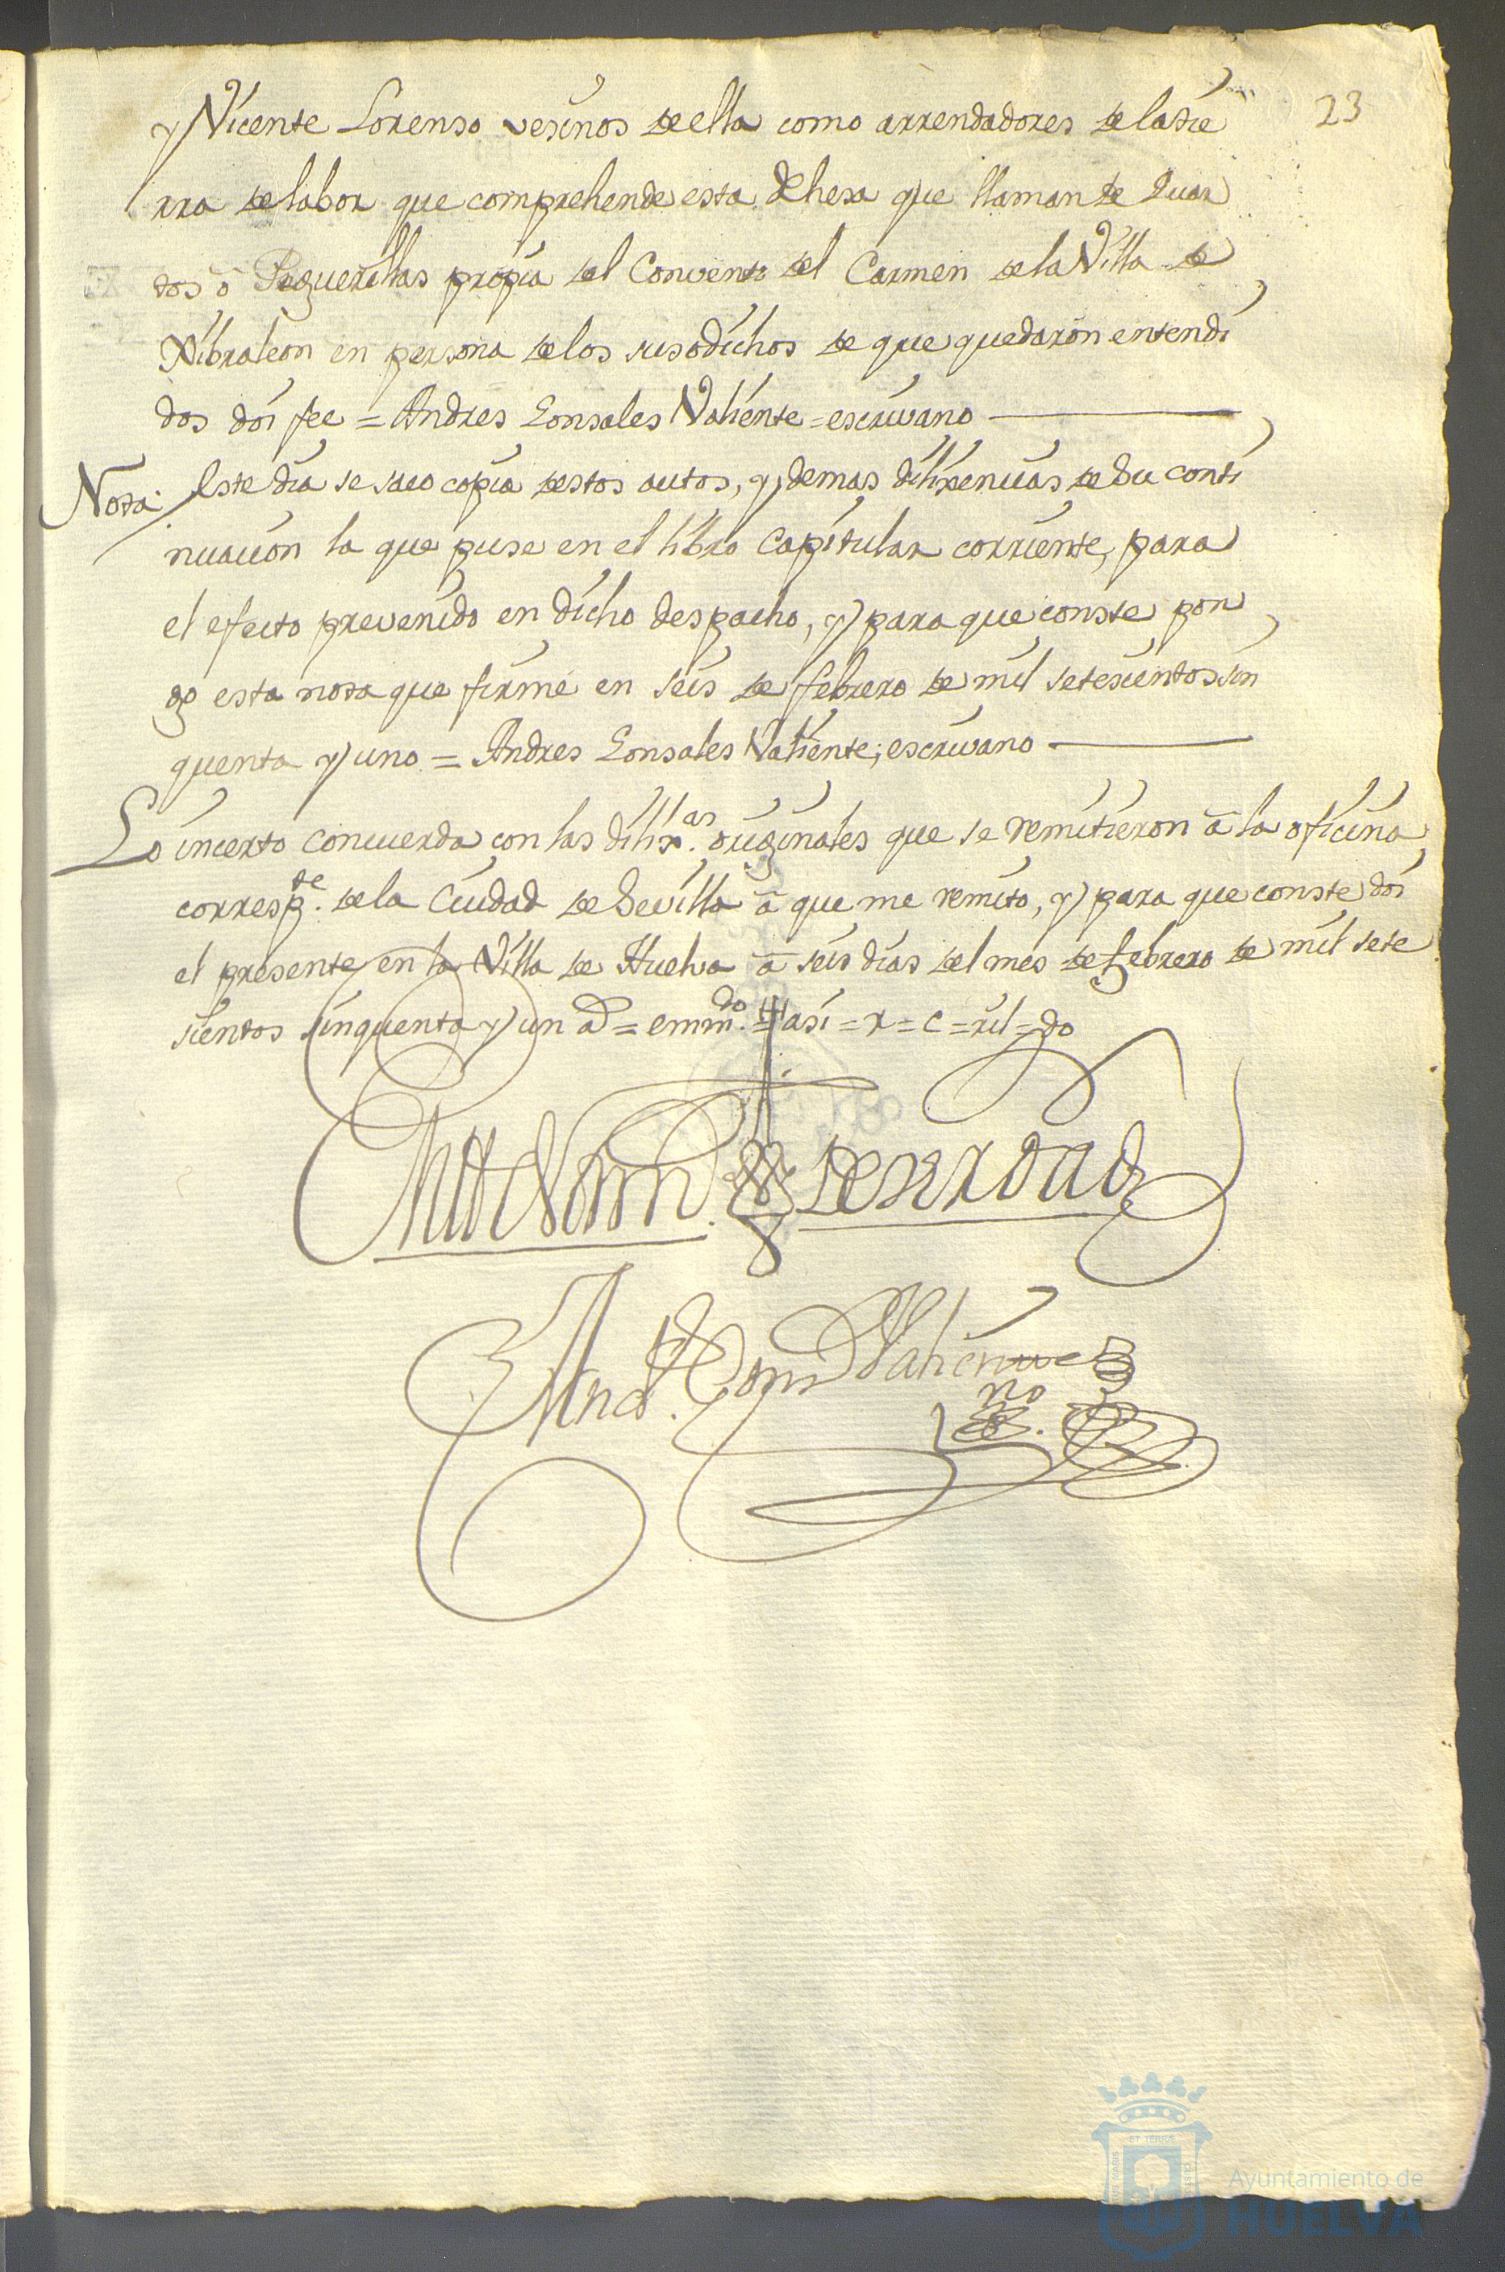 23
y Vicente Lorenso vesinos de ella como arrendadores de la tie
rra de labor que comprehende esta dehesa que llaman de Duar
dos ô Peguerillas propia del Convento del Carmen de la Villa de
Xibraleon en persona de los susodichos de que quedaron entendi
dos doi fee = Andres Gonsales Valiente = escrivano
Nota: Este dia se saco copia destos autos, y demas dilixencias de su conti
nuacion la que puse en el libro Capitular corriente, para
el efecto prevenido en dicho despacho, y para que conste pon
go esta nota que firmé en seis de febrero de mil setesientos sin
quenta y uno = Andres Gonsales Valiente, escrivano
Lo incerto concuerda con las dilix.as originales que se remitieron â la oficina
corresp.te de la Ciudad de Sevilla â que me remito, y para que conste doi
el presente en la Villa de Huelva â seis dias del mes de febrero de mil sete
sientos sinquenta y un a = emm.do = asi = r = c = xil = do
de verdad
And.s Gons Valiente
es.no
Ayuntamiento de
HUELVA